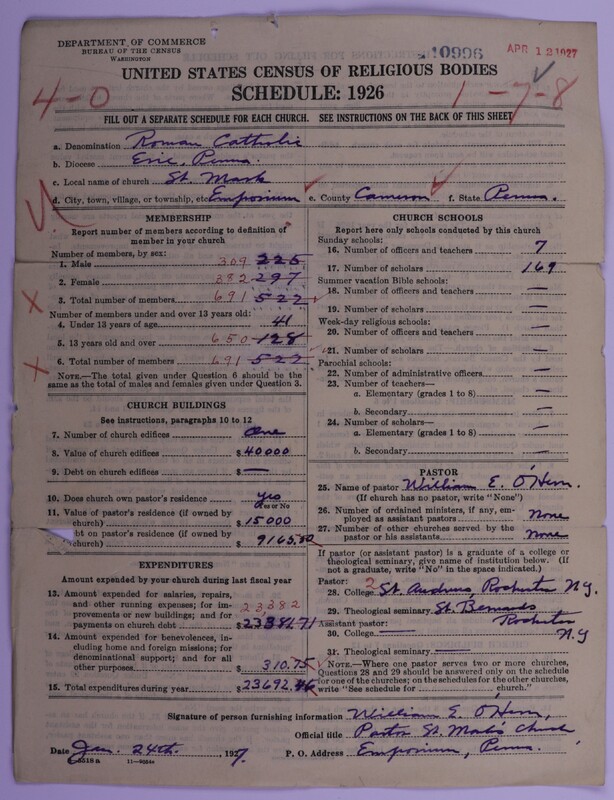 DEPARTMENT OF COMMERCE
BUREAU OF THE CENSUS
WASHINGTON
10996
APR 12 1927
UNITED STATES CENSUS OF RELIGIOUS BODIES
SCHEDULE: 1926
4-0
1-7-8
FILL OUT A SEPARATE SCHEDULE FOR EACH CHURCH. SEE INSTRUCTIONS ON THE BACK OF THIS SHEET
a. Denomination Roman Catholic
b. Diocese Erie, Penna.
c. Local name of church St. Mark
d. City, town, village, or township, etc Emporium e. County Cameron f. State Penna.
MEMBERSHIP
Report number of members according to definition of member in your church
Number of members, by sex:
1. Male 309 225
2. Female 382 297
3. Total number of members 691 522
Number of members under and over 13 years old:
4. Under 13 years of age 41
5. 13 years old and over 650 128
6. Total number of members 691 522
NOTE.—The total given under Question 6 should be the same as the total of males and females given under Question 3.
CHURCH BUILDINGS
See instructions, paragraphs 10 to 12
7. Number of church edifices One
8. Value of church edifices $ 40000
9. Debt on church edifices $ —
10. Does church own pastor's residence? Yes
Yes or No
11. Value of pastor's residence (if owned by church) $ 15000
bt on pastor's residence (if owned by church) $ 9165.00
EXPENDITURES
Amount expended by your church during last fiscal year
13. Amount expended for salaries, repairs, and other running expenses; for improvements or new buildings; and for payments on church debt 23,382 $ 23381.71
14. Amount expended for benevolences, including home and foreign missions; for denominational support; and for all other purposes $ 310.75
15. Total expenditures during year $ 23692.46
CHURCH SCHOOLS
Report here only schools conducted by this church
Sunday schools:
16. Number of officers and teachers 7
17. Number of scholars 169
Summer vacation Bible schools:
18. Number of officers and teachers —
19. Number of scholars —
Week-day religious schools:
20. Number of officers and teachers —
21. Number of scholars —
Parochial schools:
22. Number of administrative officers —
23. Number of teachers—
a. Elementary (grades 1 to 8) —
b. Secondary —
24. Number of scholars—
a. Elementary (grades 1 to 8) —
b. Secondary —
PASTOR
25. Name of pastor William E. O'Hern.
(If church has no pastor, write "None")
26. Number of ordained ministers, if any, employed as assistant pastors None
27. Number of other churches served by the pastor or his assistants None
If pastor (or assistant pastor) is a graduate of a college or theological seminary, give name of institution below. (If not a graduate, write "No" in the space indicated.)
Pastor: 2
28. College St. Andrews, Rochester N.Y.
29. Theological seminary St. Bernards Rochester N.Y
Assistant pastor:
30. College —
31. Theological seminary —
NOTE.—Where one pastor serves two or more churches, Questions 28 and 29 should be answered only on the schedule for one of the churches; on the schedules for the other churches, write "See schedule for church."
Signature of person furnishing information William E. O'Hern,
Official title Pastor St. Mark's Church
Date Jan. 24th. , 1927. P. O. Address Emporium, Penna.
11—9034a